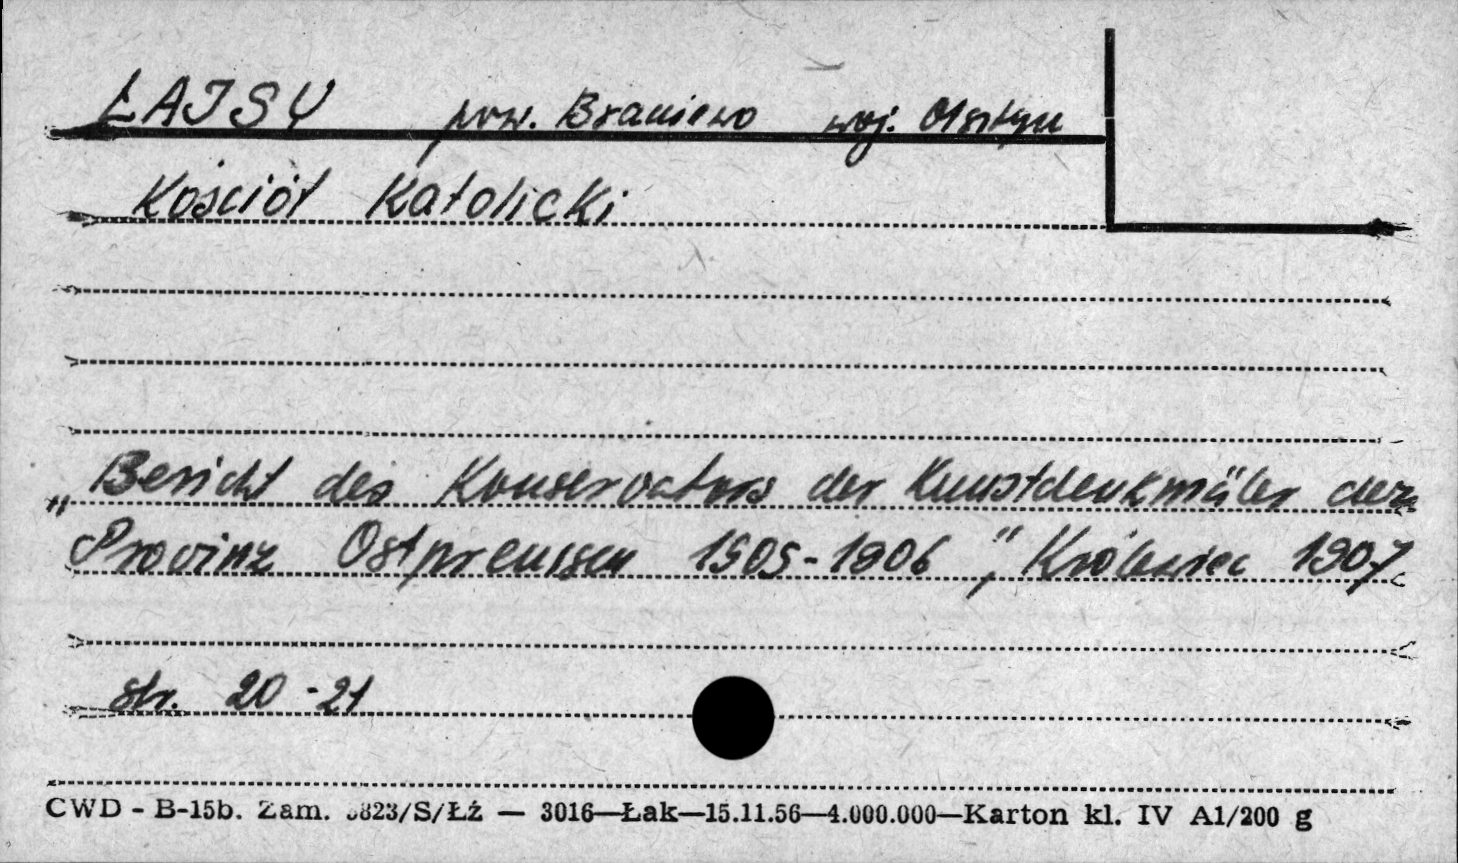 ŁAJSY pow. Braniewo woj. Olsztyn
Kościół Katolicki
„Bericht des Konservators der Kunstdenkmäler der
Provinz Ostpreussen 1905-1906", Królewiec 1907
str. 20-21
CWD - B-15b. Zam. 5823/S/Łź — 3016—Łak—15.11.56—4.000.000—Karton kl. IV A1/200 g